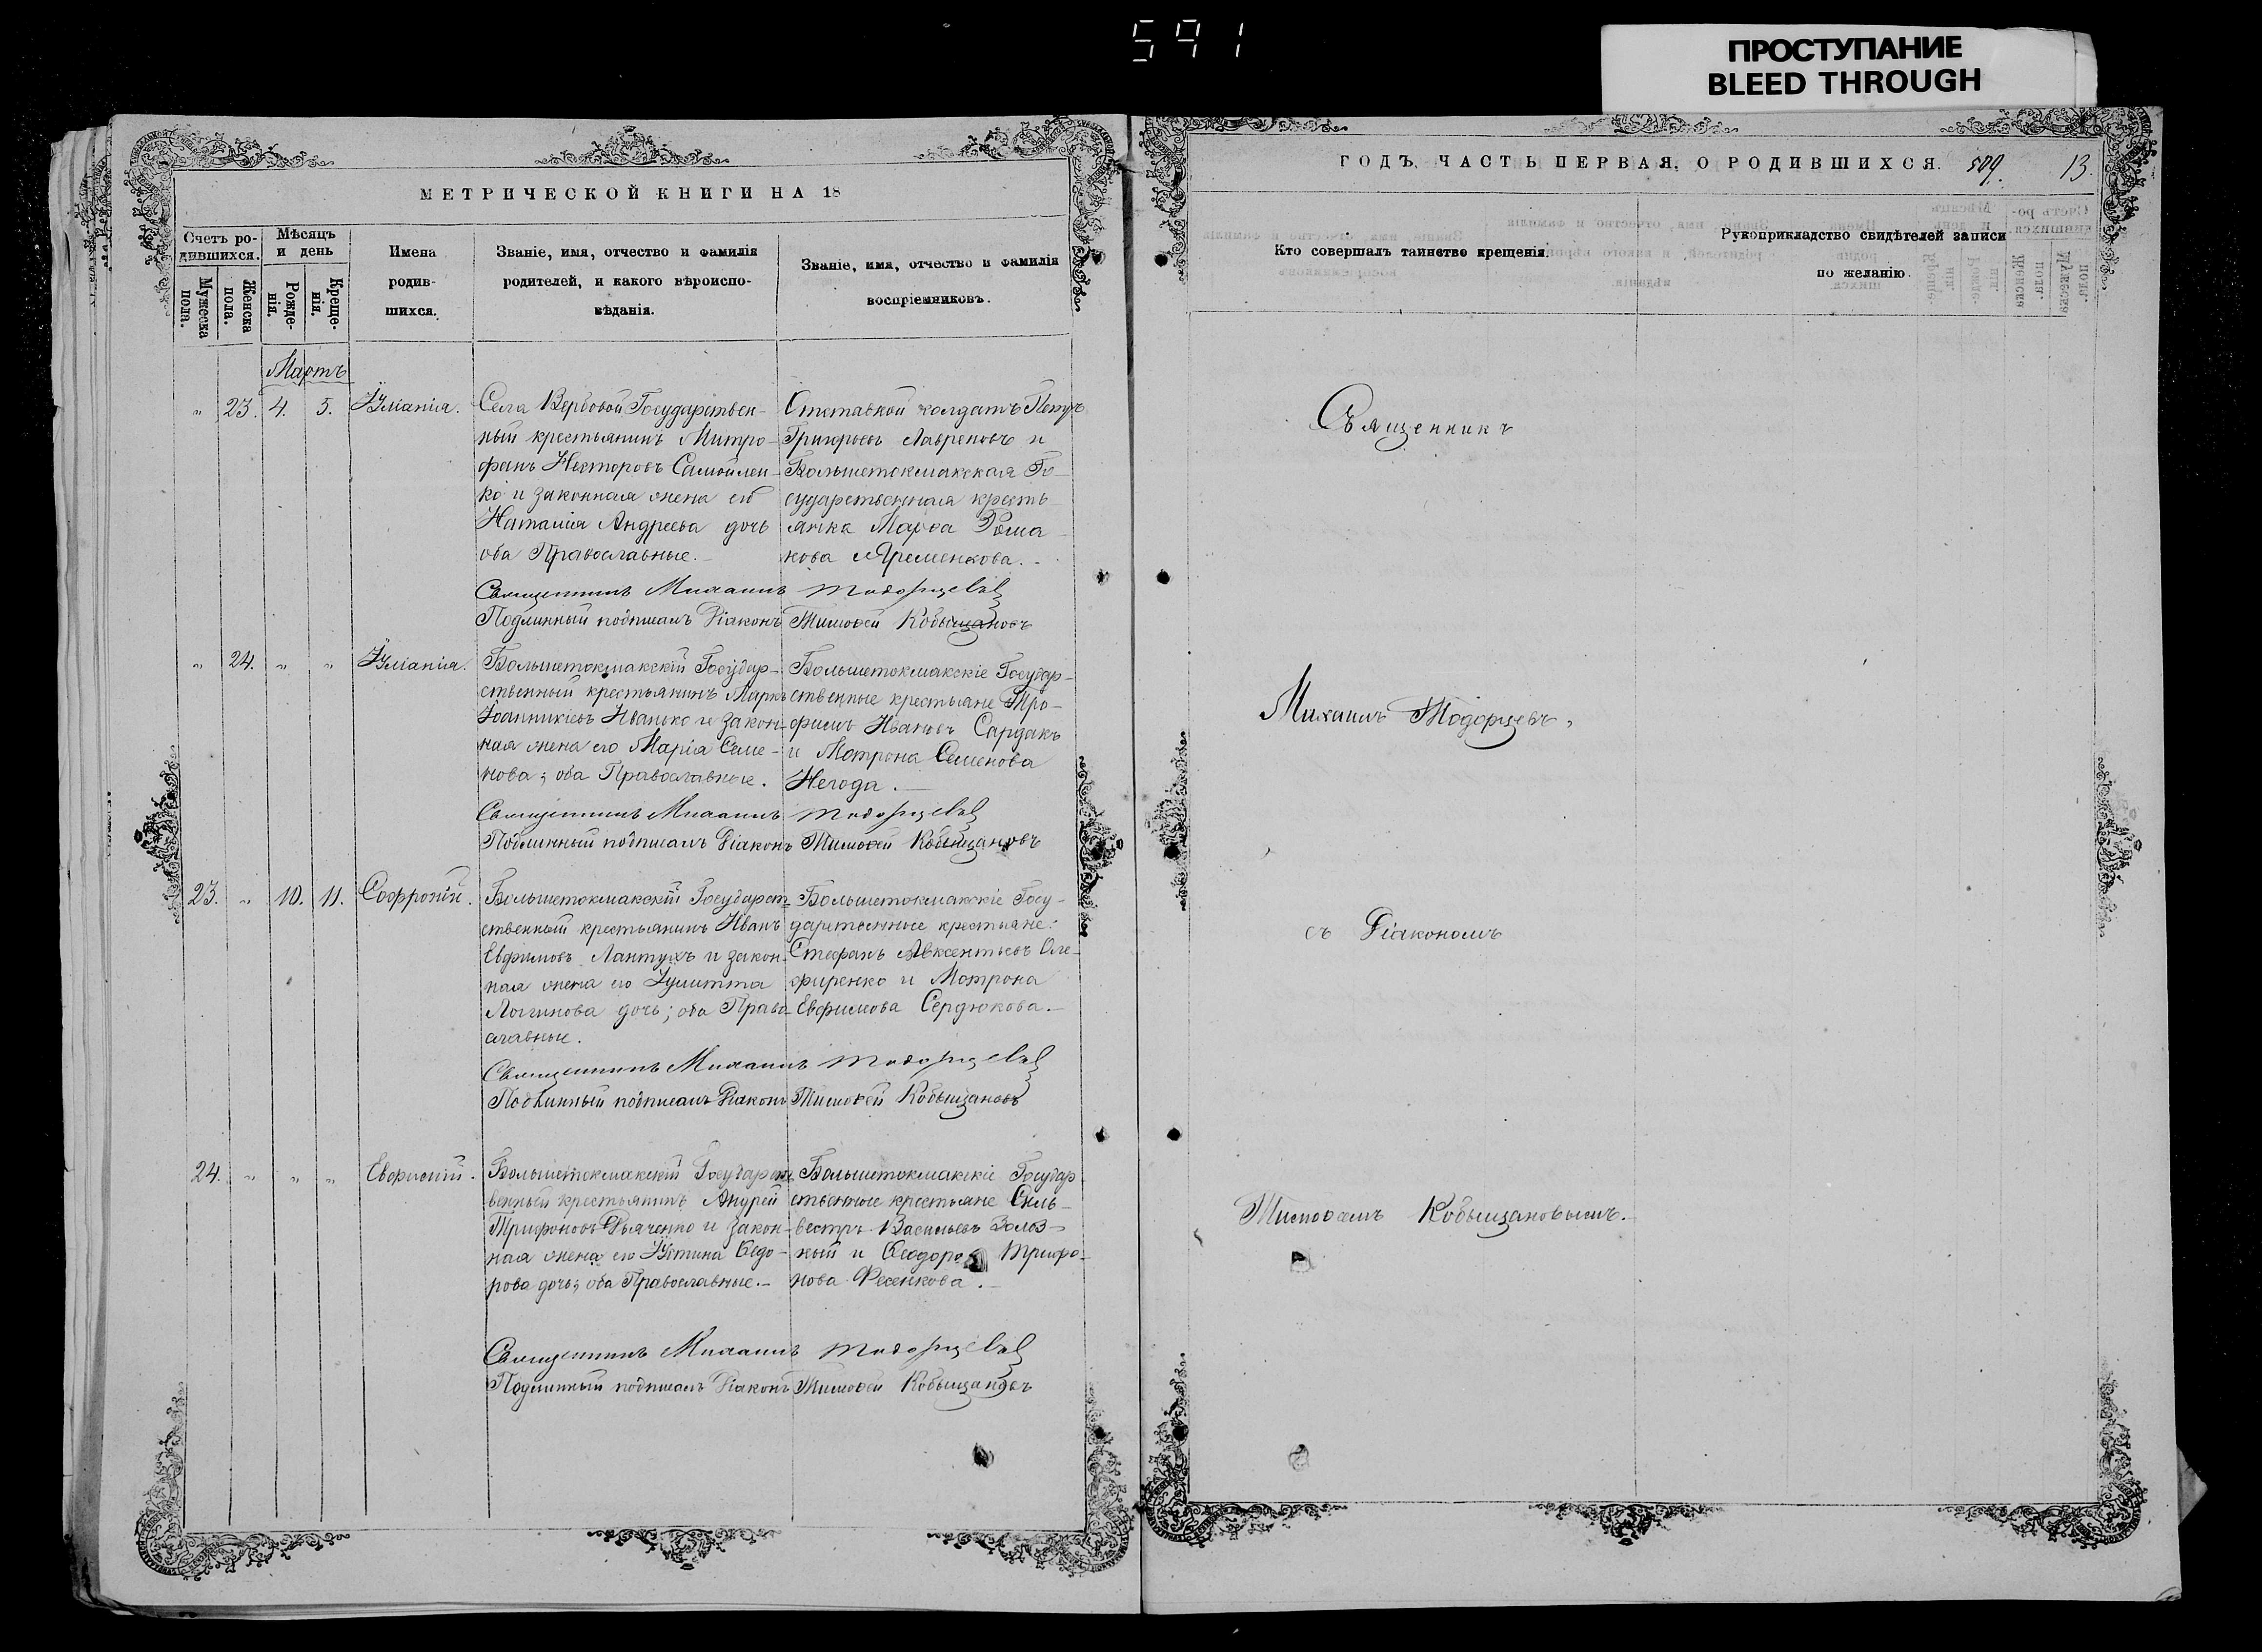 591
ПРОСТУПАНИЕ
BLEED THROUGH
МЕТРИЧЕСКОЙ КНИГИ НА 18
Счетъ ро-
дившихся.
Мужеска
пола.
Женска
пола.
Мѣсяцъ
и день
Рожде-
нія.
Креще-
нія.
Имена
родив-
шихся.
Званіе, имя, отчество и фамилія
родителей, и какого вѣроиспо-
вѣданія.
Званіе, имя, отчество и фамилія
воспріемниковъ.
Мартъ
" 23. 4. 5. Іуліанія.
Села Вербовой Государствен-
ный крестьянинъ Митро-
фанъ Несторовъ Самойлен-
ко и законная жена его
Наталія Андреева дочь
оба Православные.
Отставной солдатъ Петръ
Григорьевъ Лавреновъ и
Большетокмакская Го-
сударственная кресть-
янка Марѳа Рома-
нова Яременкова.
Священникъ Михаилъ Тодорцевъ
Подлинный подписалъ Діаконъ Тимоѳей Кобыщановъ
" 24. " " Іуліанія.
Большетокмакскій Государ-
ственный крестьянинъ Маркъ
Іоанникіевъ Иванько и закон-
ная жена его Марія Семе-
нова; оба Православные.
Большетокмакскіе Государ-
ственные крестьяне Тро-
фимъ Ивановъ Сардакъ
и Мотрона Семенова
Негода.
Священникъ Михаилъ Тодорцевъ
Подлинный подписалъ Діаконъ Тимоѳей Кобыщановъ
23. " 10. 11. Софроній.
Большетокмакскій Государст-
ственный крестьянинъ Иванъ
Евфимовъ Лантухъ и закон-
ная жена его Іулитта
Логинова дочь; оба Право-
славные.
Большетокмакскіе Госу-
дарственные крестьяне:
Стефанъ Авксентьевъ Оле-
фиренко и Мотрона
Евфимова Сердюкова.
Священникъ Михаилъ Тодорцевъ
Подлинный подписалъ Діаконъ Тимоѳей Кобыщановъ
24. " " " Евфимій.
Большетокмакскій Государст-
венный крестьянинъ Андрей
Трифоновъ Дьяченко и закон-
ная жена его Іустина Ѳедо-
рова дочь; оба Православные.
Большетокмакскіе Государ-
ственные крестьяне Силь-
вестръ Васильевъ
ный и Ѳеодора Трифо-
нова Фесенкова.
Священникъ Михаилъ Тодорцевъ
Подлинный подписалъ Діаконъ Тимоѳей Кобыщановъ
ГОДЪ, ЧАСТЬ ПЕРВАЯ, О РОДИВШИХСЯ. 509. 13.
Кто совершалъ таинство крещенія.
Рукоприкладство свидѣтелей записи
по желанію.
Священникъ
Михаилъ Тодорцевъ,
съ Діакономъ
Тимоѳеемъ Кобыщановымъ.